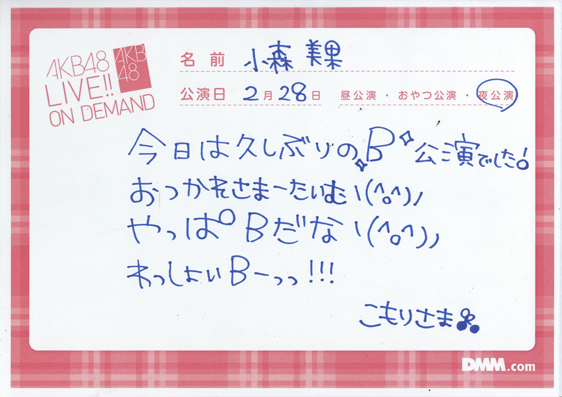 AKB48
LIVE!!
ON DEMAND
AKB
48
名前 小森 美果
公演日 2月28日 昼公演・おやつ公演・夜公演
今日は久しぶりのB公演でした!
おつかれさまーたいむヽ(^o^)丿
やっぱBだなヽ(^o^)丿
わっしょいBーっっ!!!
こもりさま
DMM.com